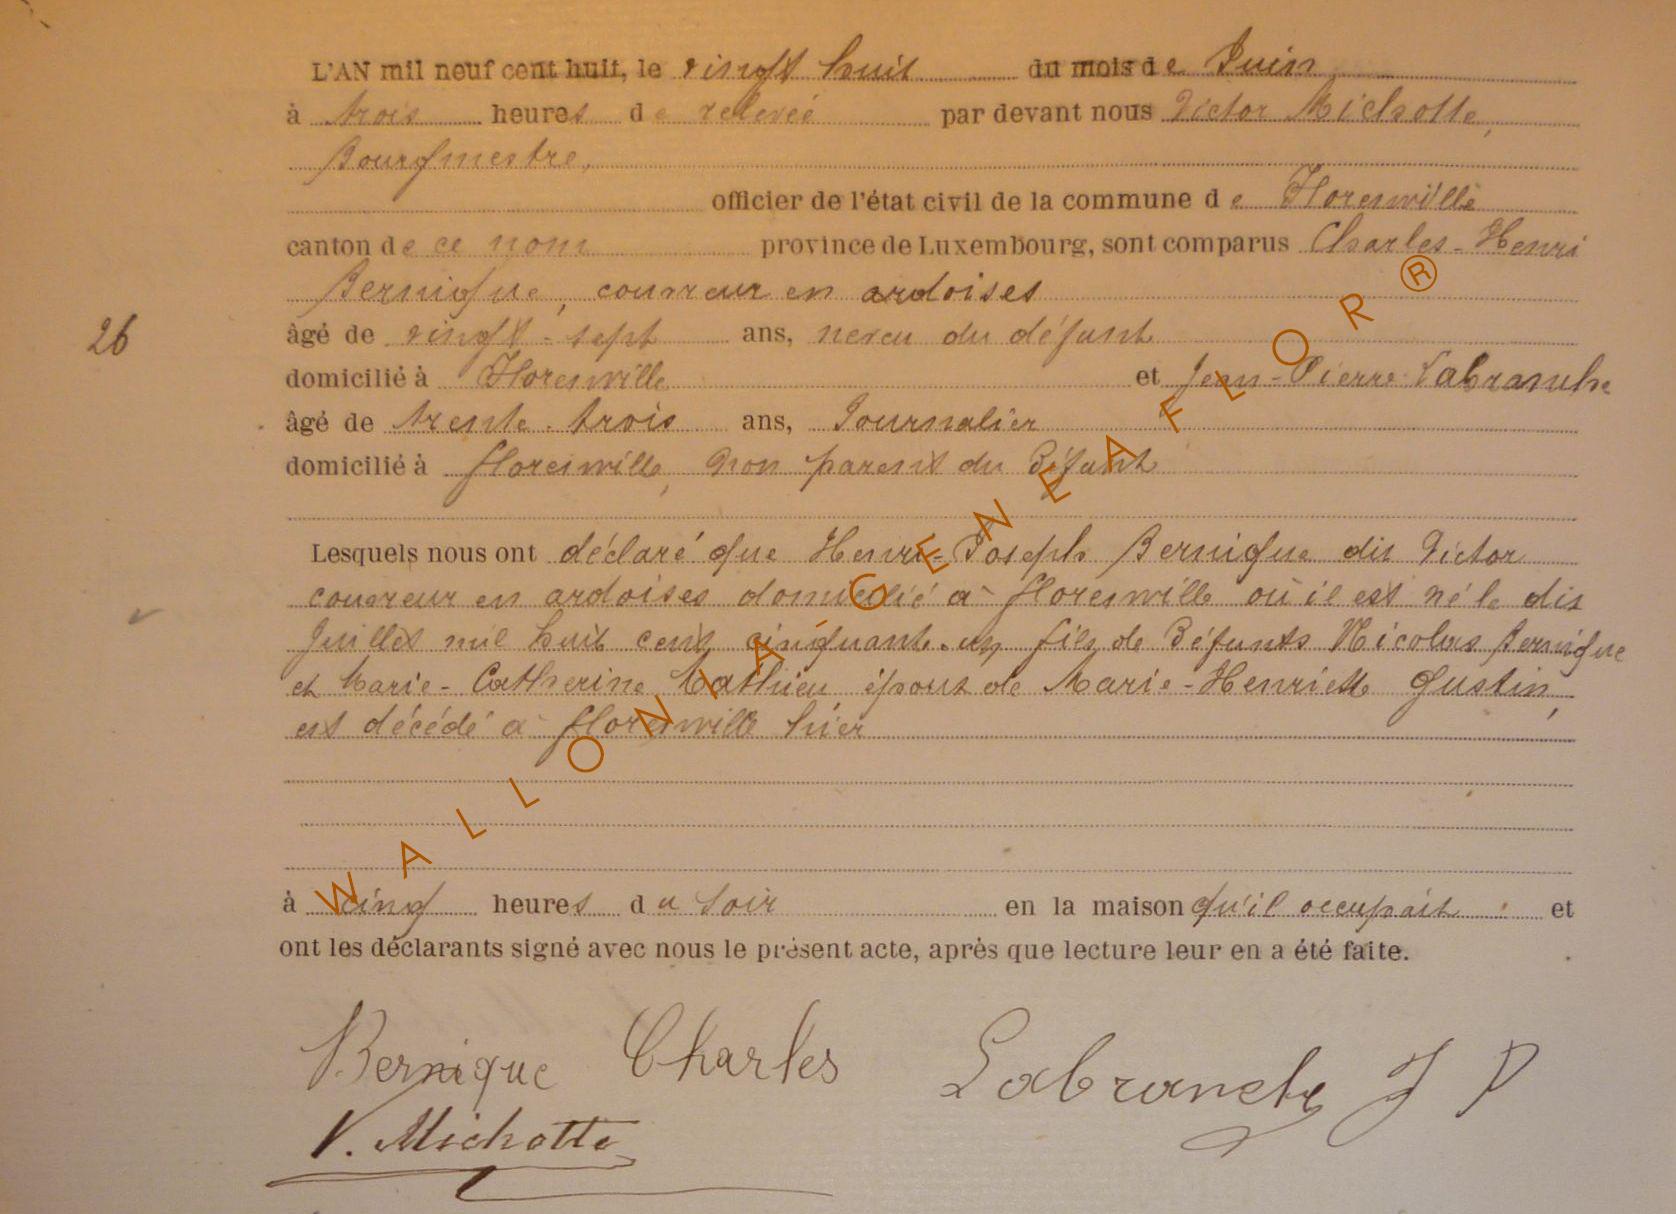 L'AN mil neuf cent huit, le vingt huit du mois de Juin
à trois heures de relevée par devant nous Victor Michotte,
Bourgmestre,
officier de l'état civil de la commune de Florenville
canton de ce nom province de Luxembourg, sont comparus Charles-Henri
Bernique, couvreur en ardoises
26
âgé de vingt-sept ans, neveu du défunt
domicilié à Florenville et Jean-Pierre Labranche
âgé de trente-trois ans, Journalier
domicilié à florenville, non parent du Défunt
Lesquels nous ont déclaré que Henri-Joseph Bernique dit Victor
couvreur en ardoises domicilié à florenville où il est né le dix
Juillet mil huit cent cinquante-un, fils de Défunts Nicolas Bernique
et Marie-Catherine Mathieu époux de Marie-Henriette Gustin,
est décédé à florenville hier
à cinq heures du soir en la maison qu'il occupait et
ont les déclarants signé avec nous le présent acte, après que lecture leur en a été faite.
Bernique Charles Labranche J P
V. Michotte
WALLONIA GENEAFLOR®